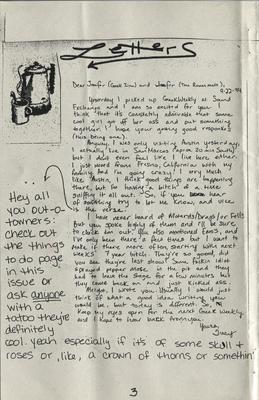 Letters
Dear Jenifer (Geek Diva) and Jenifer (The Roommate),
9-22-94
Yesterday I picked up Geek Weekly at Sound
Exchange and I am so excited for you. I
think that it's completely admirable that some
cool girl got off her ass and put something
together. I hope your getting good responses
(this being one).
Anyway, I was only visiting Austin yesterday,
I actually live in San Marcos (aprox 20 min South)
but I don't even feel like I live here either.
I just moved from Fresno, California with my
family and I'm going crazy! I very much
like Austin, I think good things are happening
there, but I'm having a bitch of a time
sniffing it all out. So, if you hear
of something try to let me know, and vice
is the versa.
I have never heard of
But you spoke highly of them and I'll be sure
to check em out. You also mentioned
I've only been there a few times but I want to
make it there more often starting with next
week's 7 year bitch! They're so good, did
you see their last show? Some fuckin idiot
sprayed pepper mace in the pit and they
had to leave the stage for a few minutes but
they came back on and just kicked ass.
I wrote you. Usually I would just
think of what a good idea writing you
would be, but today is different. So, I'll
keep my eyes open for the next Geek Weekly
and I hope to hear back from you.
Yours,
Hey all
you out-o-
towners.
check out
the things
to do page
in this
issue or
ask anyone
with a
tattoo they're
definitely
cool. yeah especially if it's of some skull +
roses or, like, a crown of thorns or somethin'
3